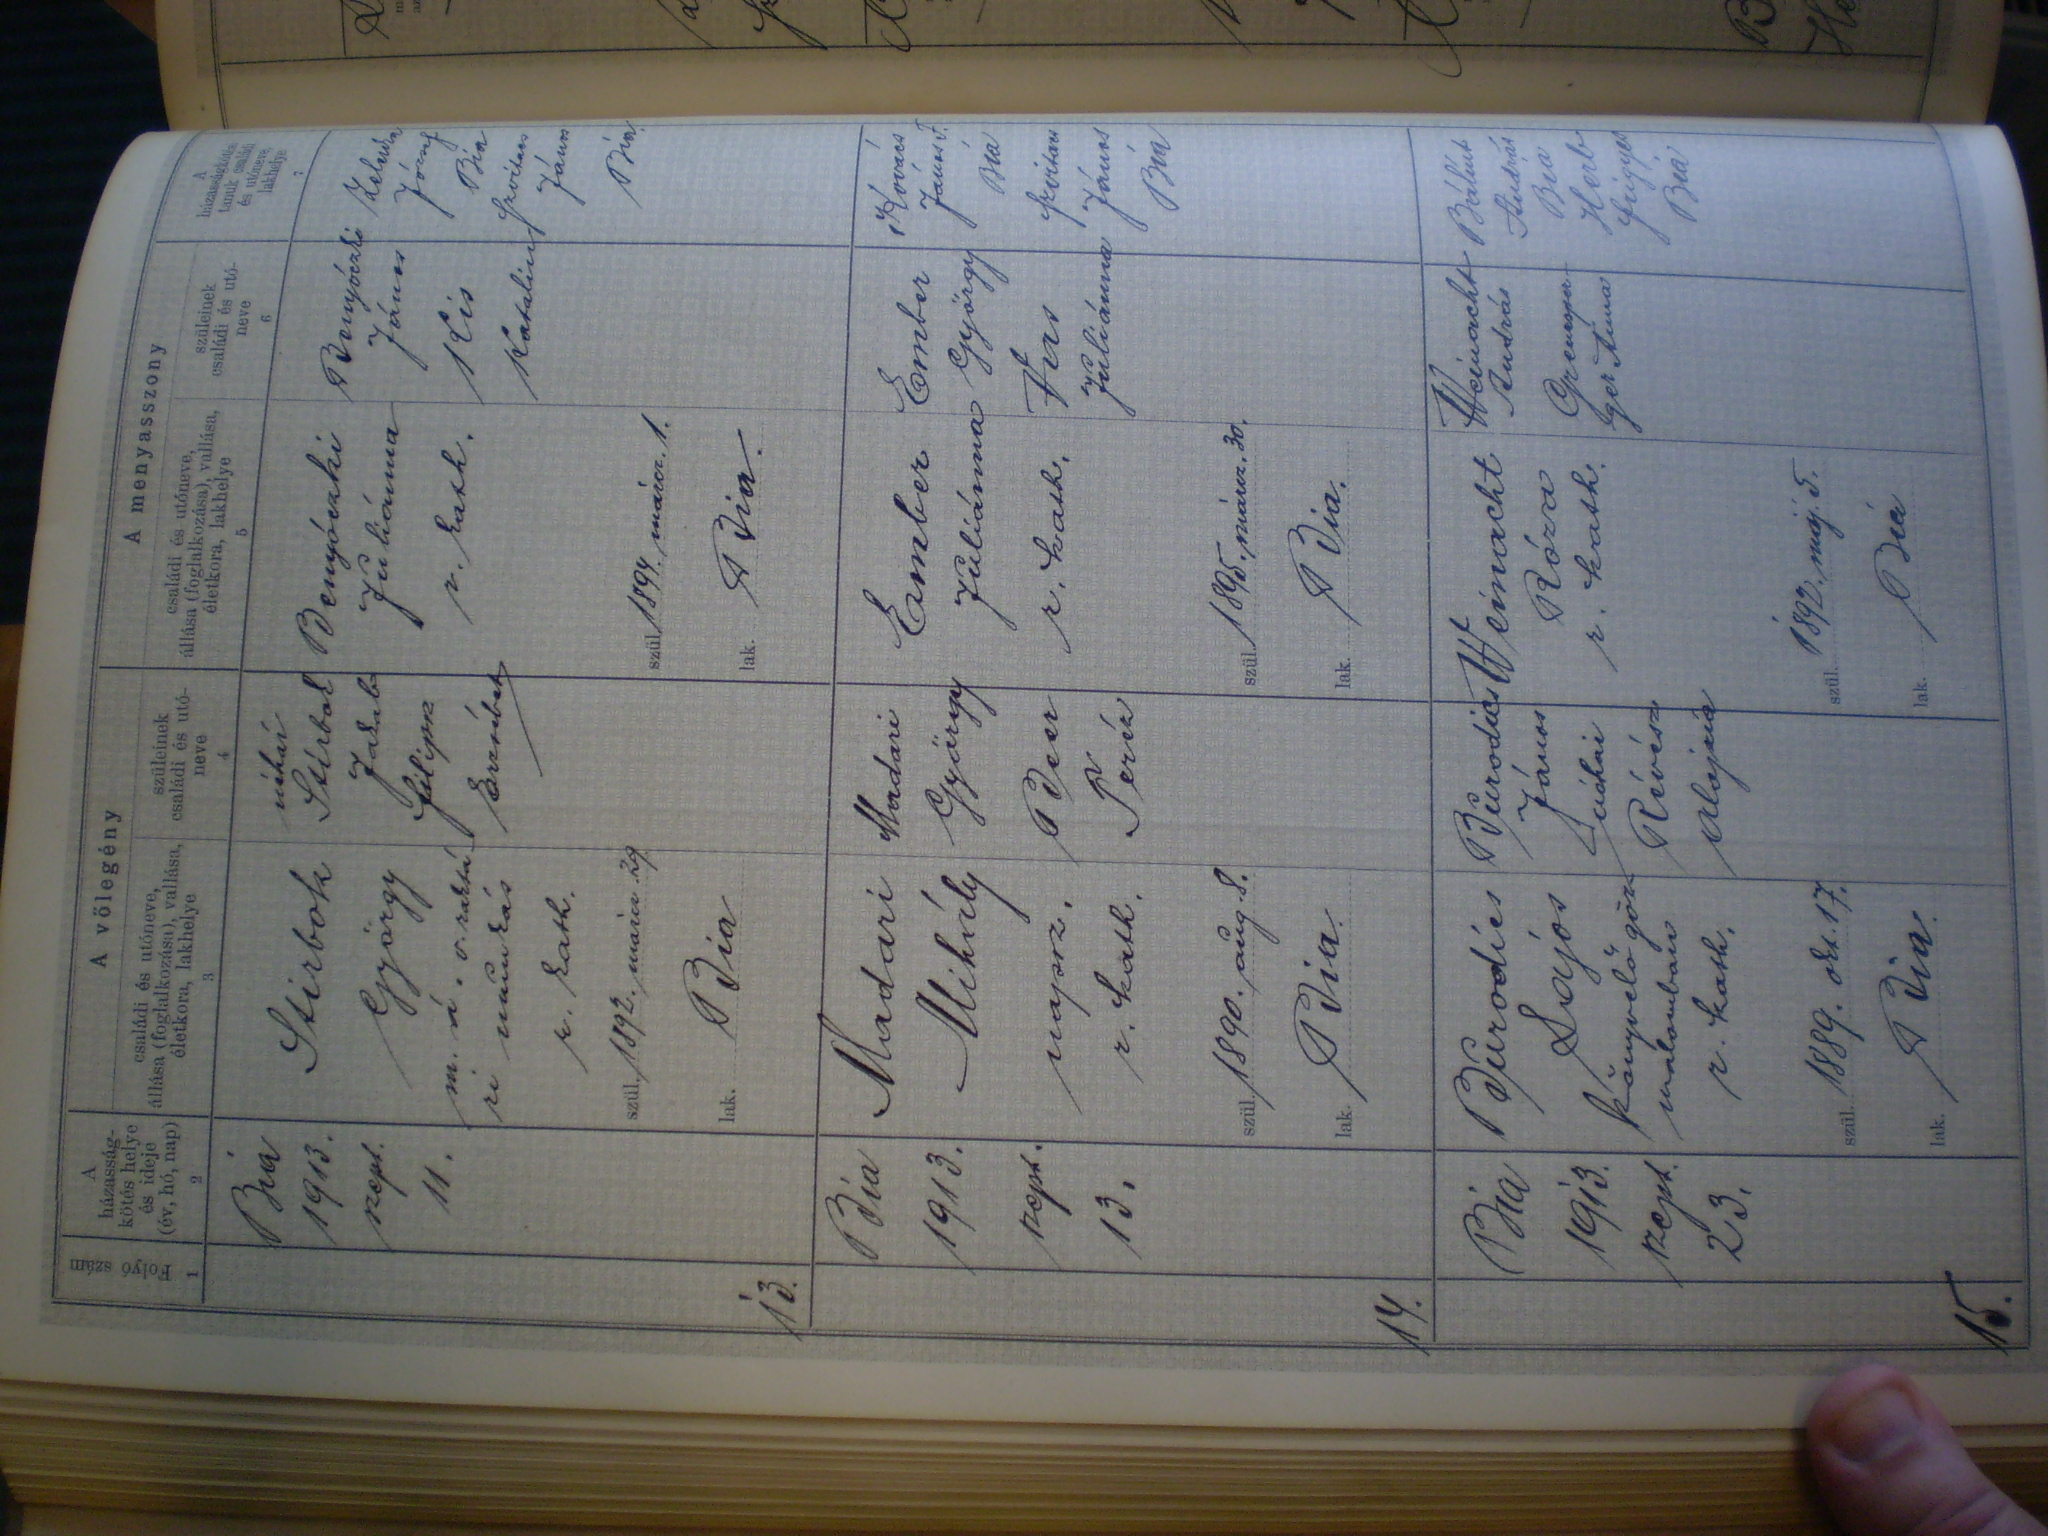 Folyó szám
1
A
házasság-
kötés helye
és ideje
(év, hó, nap)
2
A vőlegény
családi és utóneve,
állása (foglalkozása), vallása,
életkora, lakhelye
3
szüleinek
családi és utó-
neve
4
A menyasszony
családi és utóneve,
állása (foglalkozása), vallása,
életkora, lakhelye
5
szüleinek
családi és utó-
neve
6
A
házasságkötés
tanuk családi
és utóneve,
lakhelye
7
13.
Bia
1913.
szept.
11.
Stirbok
György
r. kath.
szül. 1892. márcz. 29.
lak. Bia
néhai
Stirbok
Jakab
Filipsz
Erzsébet
Benyóczki
Juliánna
r. kath.
szül. 1894. márcz. 1.
lak. Bia.
Benyóczki
János
Kis
Katalin
József
Bia
Szvitan
János
Bia.
14.
Bia
1913.
szept.
13.
Madari
Mihály
napsz.
r. kath.
szül. 1890. aug. 8.
lak. Bia.
Madari
György
Beer
Teréz
Ember
Juliánna
r. kath.
szül. 1895. márcz. 30.
lak. Bia.
Ember
György
Vas
Juliánna
Kovács
János
Bia
Szvitan
János
Bia
15.
Bia
1913.
szept.
23.
Burodics
Lajos
könyvelő göz
malomban
r. kath.
szül. 1889. okt. 17.
lak. Bia.
Burodics
János
Révész
Alojzia
Weinacht
Róza
r. kath.
szül. 1892. máj. 5.
lak. Bia
Weinacht
András
ger Anna
Bálint
András
Bia
Herb
Frigyes
Bia